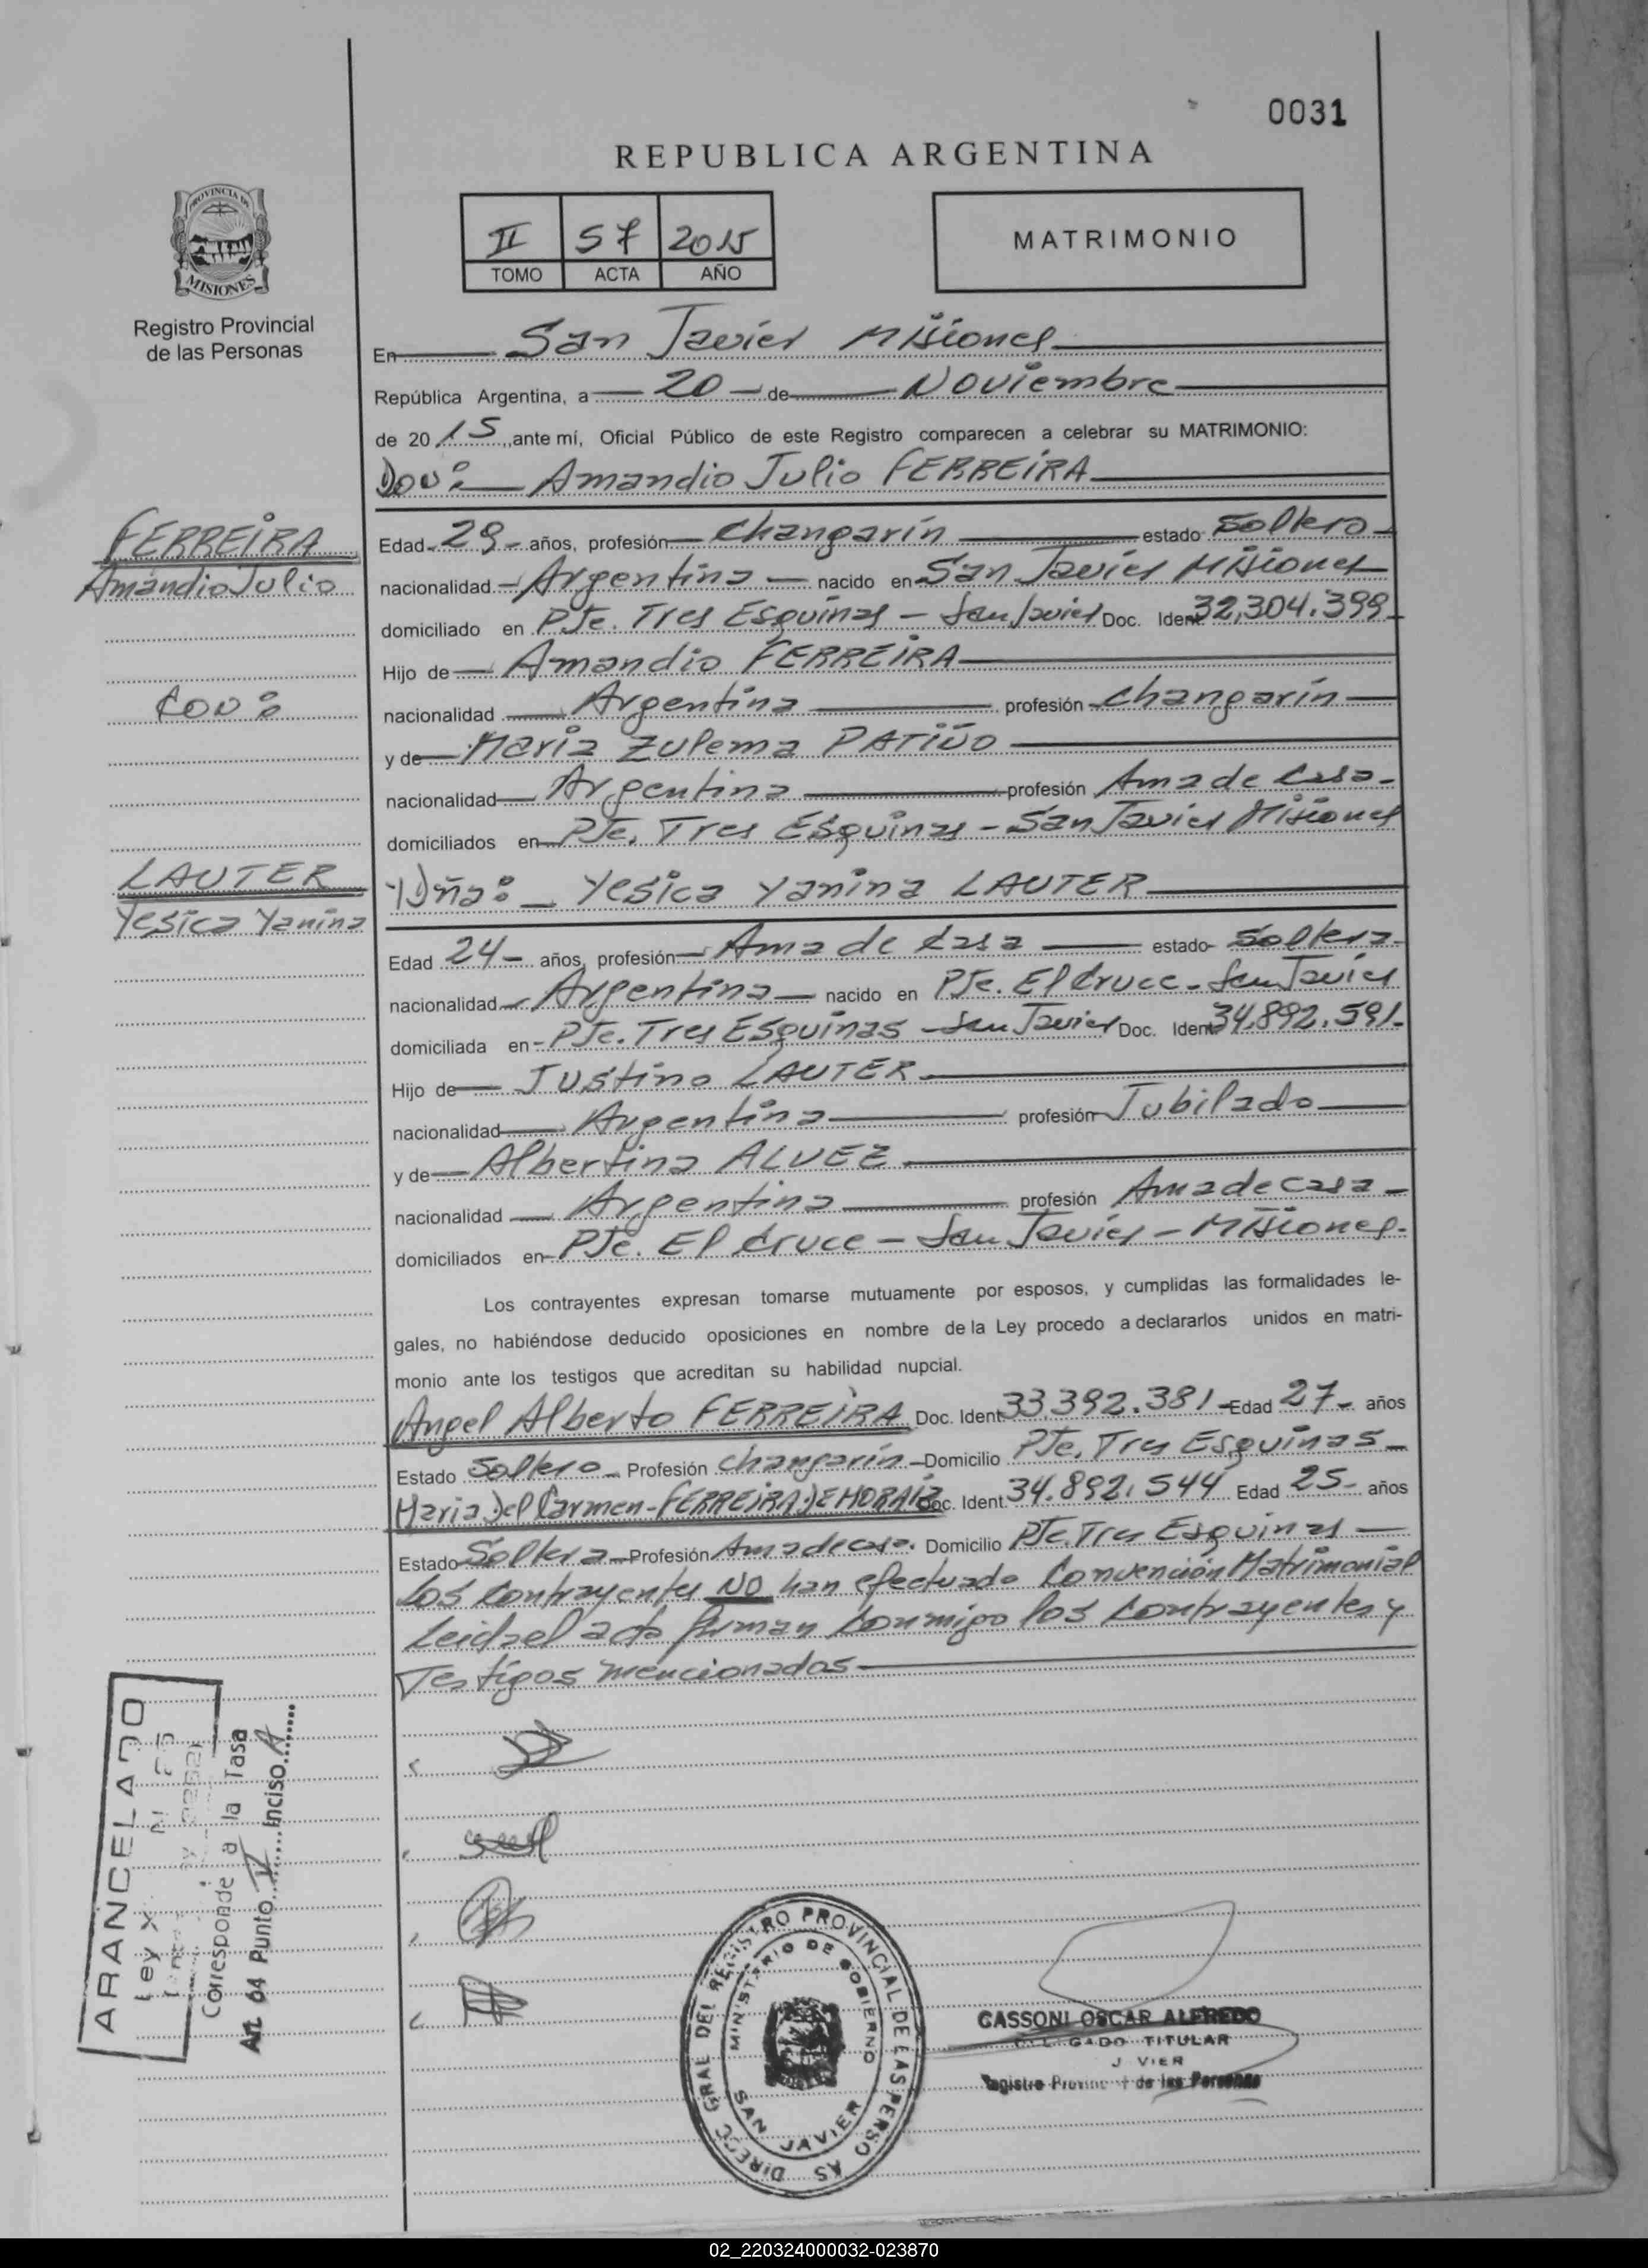 0031
REPUBLICA ARGENTINA
PROVINCIA DE
MISIONES
Registro Provincial
de las Personas
II 57 2015
TOMO ACTA AÑO
MATRIMONIO
En San Javier Misiones
República Argentina, a 20 de Noviembre
de 2015, ante mí, Oficial Público de este Registro comparecen a celebrar su MATRIMONIO:
Don: Amandio Julio FERREIRA
FERREIRA
Amandio Julio
Con:
LAUTER
Yesica Yanina
Edad 29 años, profesión Changarín estado Soltero
nacionalidad Argentina nacido en San Javier Misiones
domiciliado en Pje. Tres Esquinas - San Javier Doc. Ident 32.304.399
Hijo de Amandio FERREIRA
nacionalidad Argentina profesión Changarín
y de Maria Zulema PATIÑO
nacionalidad Argentina profesión Ama de Casa
domiciliados en Pje. Tres Esquinas - San Javier Misiones
Y Dña: Yesica Yanina LAUTER
Edad 24 años, profesión Ama de Casa estado Soltera
nacionalidad Argentina nacido en Pje. El Cruce - San Javier
domiciliada en Pje. Tres Esquinas - San Javier Doc. Ident 34.892.591
Hijo de Justino LAUTER
nacionalidad Argentina profesión Jubilado
y de Albertina ALVEZ
nacionalidad Argentina profesión Ama de casa
domiciliados en Pje. El Cruce - San Javier - Misiones
Los contrayentes expresan tomarse mutuamente por esposos, y cumplidas las formalidades le-
gales, no habiéndose deducido oposiciones en nombre de la Ley procedo a declararlos unidos en matri-
monio ante los testigos que acreditan su habilidad nupcial.
Angel Alberto FERREIRA Doc. Ident 33.392.381 Edad 27 años
Estado Soltero Profesión Changarín Domicilio Pje. Tres Esquinas
Maria Del Carmen FERREIRA DE MORAIZ Doc. Ident. 34.892.544 Edad 25 años
Estado Soltera Profesión Ama de casa. Domicilio Pje. Tres Esquinas
Los Contrayentes NO han efectuado Convención Matrimonial
Leida el acta firman conmigo los contrayentes y
Testigos mencionados
ARANCELADO
Ley X
Corresponde a la Tasa
Art 64 Punto V Inciso A
DIRECC GRAL DEL REGISTRO PROVINCIAL DE LAS PERSO AS
MINISTERIO DE GOBIERNO
SAN JAVIER
CASSONI OSCAR ALFREDO
GADO TITULAR
J VIER
Registro de las Personas
02_220324000032-023870